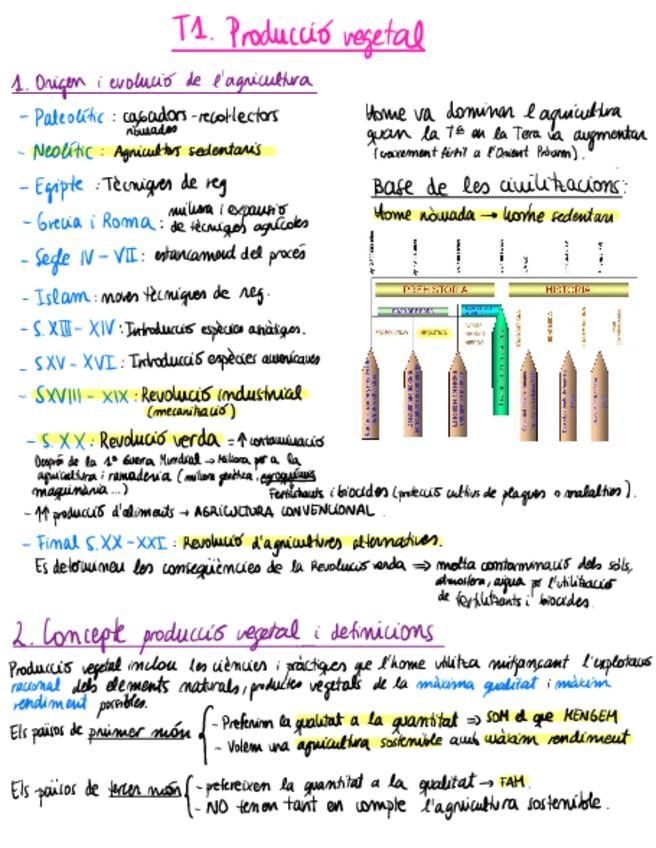 T1. Producció vegetal
1. Origen i evolució de l'agricultura
- Paleolític : caçadors - recol·lectors
nòmades
- Neolític : Agricultors sedentaris
- Egipte : Tècniques de reg
- Grècia i Roma : millora i expansió
de tècniques agrícoles
- Segle IV - VII : estancament del procés
- Islam : noves tècniques de reg.
- S. XIII - XIV : Introducció espècies asiàtiques.
- S XV - XVI : Introducció espècies americanes
- S XVIII - XIX : Revolució industrial
(mecanització)
- S. XX : Revolució verda = ↑ contaminació
Després de la 1ª Guerra Mundial → Millora per a la
agricultura i ramaderia (millora genètica, agroquímics
maquinària ...)
Fertilitzants i biocides (protecció cultius de plagues o malalties).
- ↑↑ producció d'aliments → AGRICULTURA CONVENCIONAL
- Final S. XX - XXI : Revolució d'agricultures alternatives.
Es determinen les conseqüències de la Revolució verda ⇒ molta contaminació dels sòls,
atmosfera, aigua per l'utilització
de fertilitzants i biocides.
Home va dominar l'agricultura
quan la Tª en la Terra va augmentar
(creixement fèrtil a l'Orient Pròxim).
Base de les civilitzacions:
Home nòmada → home sedentari
PREHISTÒRIA
HISTÒRIA
2. Concepte producció vegetal i definicions
Producció vegetal inclou les ciències i pràctiques que l'home utilitza mitjançant l'explotació
racional dels elements naturals, productes vegetals de la màxima qualitat i màxim
rendiment possibles.
Els països de primer món
- Prefereixen la qualitat a la quantitat ⇒ SOM el que MENGEM
- Volem una agricultura sostenible amb màxim rendiment
Els països de tercer món
- prefereixen la quantitat a la qualitat → FAM.
- NO tenen tant en compte l'agricultura sostenible.